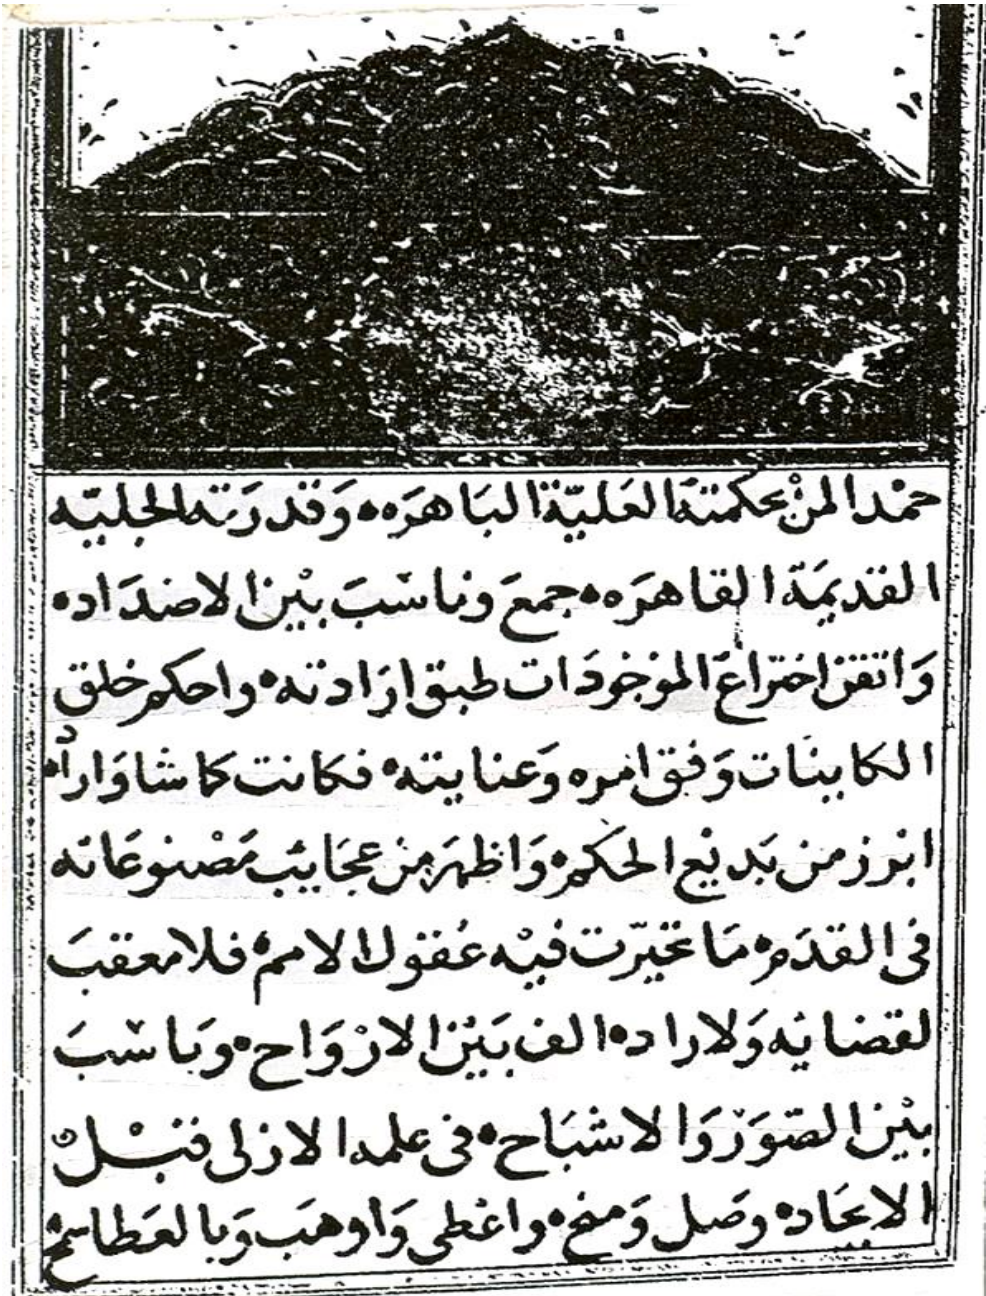 حمْدا لمنْ بحكمته العَليّة البَاهرَه وَقدرَته الجليّه
القديمَة القاهرَه جمعَ وناسَبَ بيْن الاضدَاد
وَاتقن اختراعَ الموْجودَات طبق ارَادته واحكم خلق
الكاينَات وَفق امره وَعنايته فكانت كما شا وَارَاد
ابْرز من بَديْع الحكم وَاظهَر من عجَايَب مَصْنوعَاته
فى القدَم مَا تحيّرت فيْه عُقول الامم فلا معقبَ
لقضائه وَلا راد الف بَيْن الارْوَاح وناسَبَ
بيْن الصّوَر وَالاشبَاح فى علمه الازلى قبْل
الايجَاد وصَل وَمنح واعْطى وَاوهَب وَبالعَطا سمح